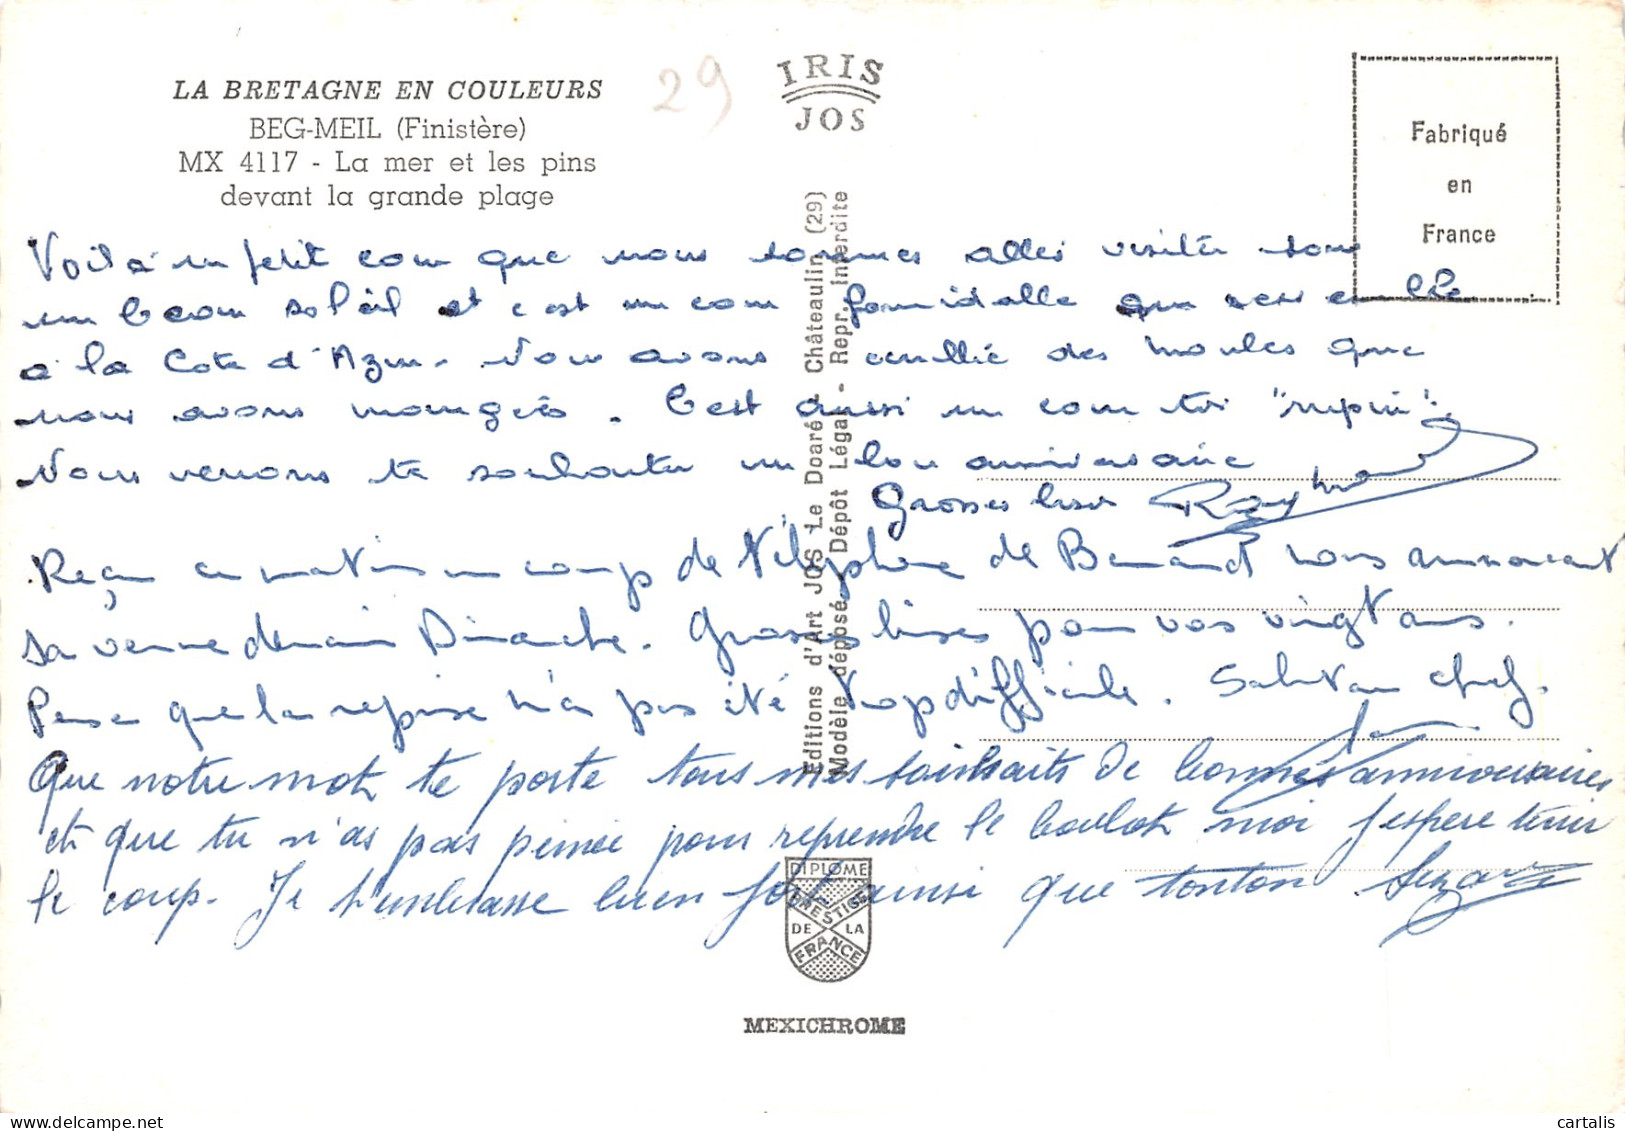 LA BRETAGNE EN COULEURS
BEG-MEIL (Finistère)
MX 4117 - La mer et les pins
devant la grande plage
29
IRIS
JOS
Fabriqué
en
France
Editions d'Art JOS Le Doaré - Châteaulin (29)
Modèle déposé. Dépôt Légal - Repr. Interdite
Voilà un petit coin que nous sommes allés visiter sous
un beau soleil et c'est un coin formidable que ressemble
à la Cote d'Azur. Nous avons cueillie des moules que
nous avons mangées. C'est aussi un coin toi "rupin".
Nous venons te souhaiter un bon anniversaire
Grosses bises Raymond
Reçu ce matin un coup de téléphone de Bernard nous annonçant
sa venue demain Dimanche. Grosses bises pour vos vingt ans.
Pense que la reprise n'a pas été trop difficile. Salut au chef.
Que notre mot te porte tous mes souhaits de bonnes anniversaires
et que tu n'as pas peinée pour reprendre le boulot moi j'espère tenir
le coup. Je t'embrasse bien fort ainsi que tonton Suzanne
DIPLOME
PRESTIGE
DE LA
FRANCE
MEXICHROME
cartalis